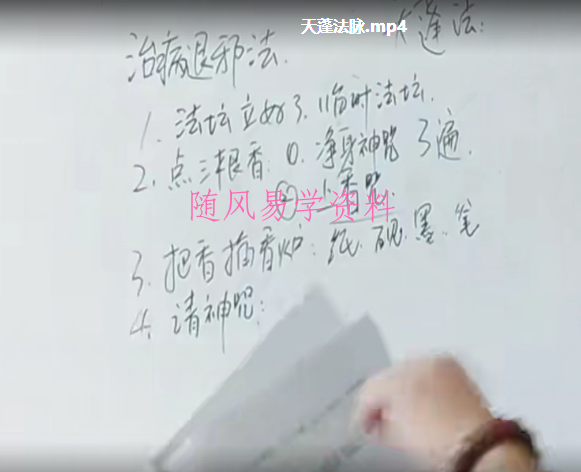 天蓬法脉.mp4
蓬法:
治病退邪法.
1. 法坛立好了, 临时法坛.
2. 点三根香: ①. 净身神咒 3遍.
② 上香咒.
随风易学资料
3. 把香插香炉: 纸. 砚. 墨. 笔
4. 请神咒: